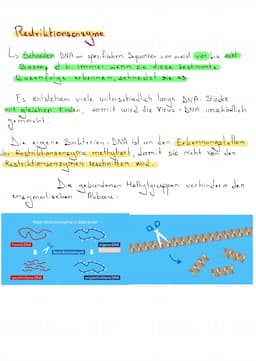 Restriktionsenzyme
↳ Schneiden DNA an spezifischen Sequenzen von meist vier bis acht
Basen, d.h. immer, wenn sie diese bestimmte
Basenfolge erkennen, schneidet sie es
Es entstehen viele unterschiedlich lange DNA-Stücke
mit gleichen Enden, somit wird die Virus-DNA unschädlich
gemacht.
Die eigene Bakterien-DNA ist an den Erkennungsstellen
der Restriktionsenzyme methyliert, damit sie nicht von den
Restriktionsenzymen zerschnitten wird.
Die gebundenen Methylgruppen verhindern den
enzymatischen Abbau.
Restriktionsenzyme in Bakterien
fremde DNA
eigene DNA
Restriktionsenzyme
geschnittene DNA
ungeschnittene DNA